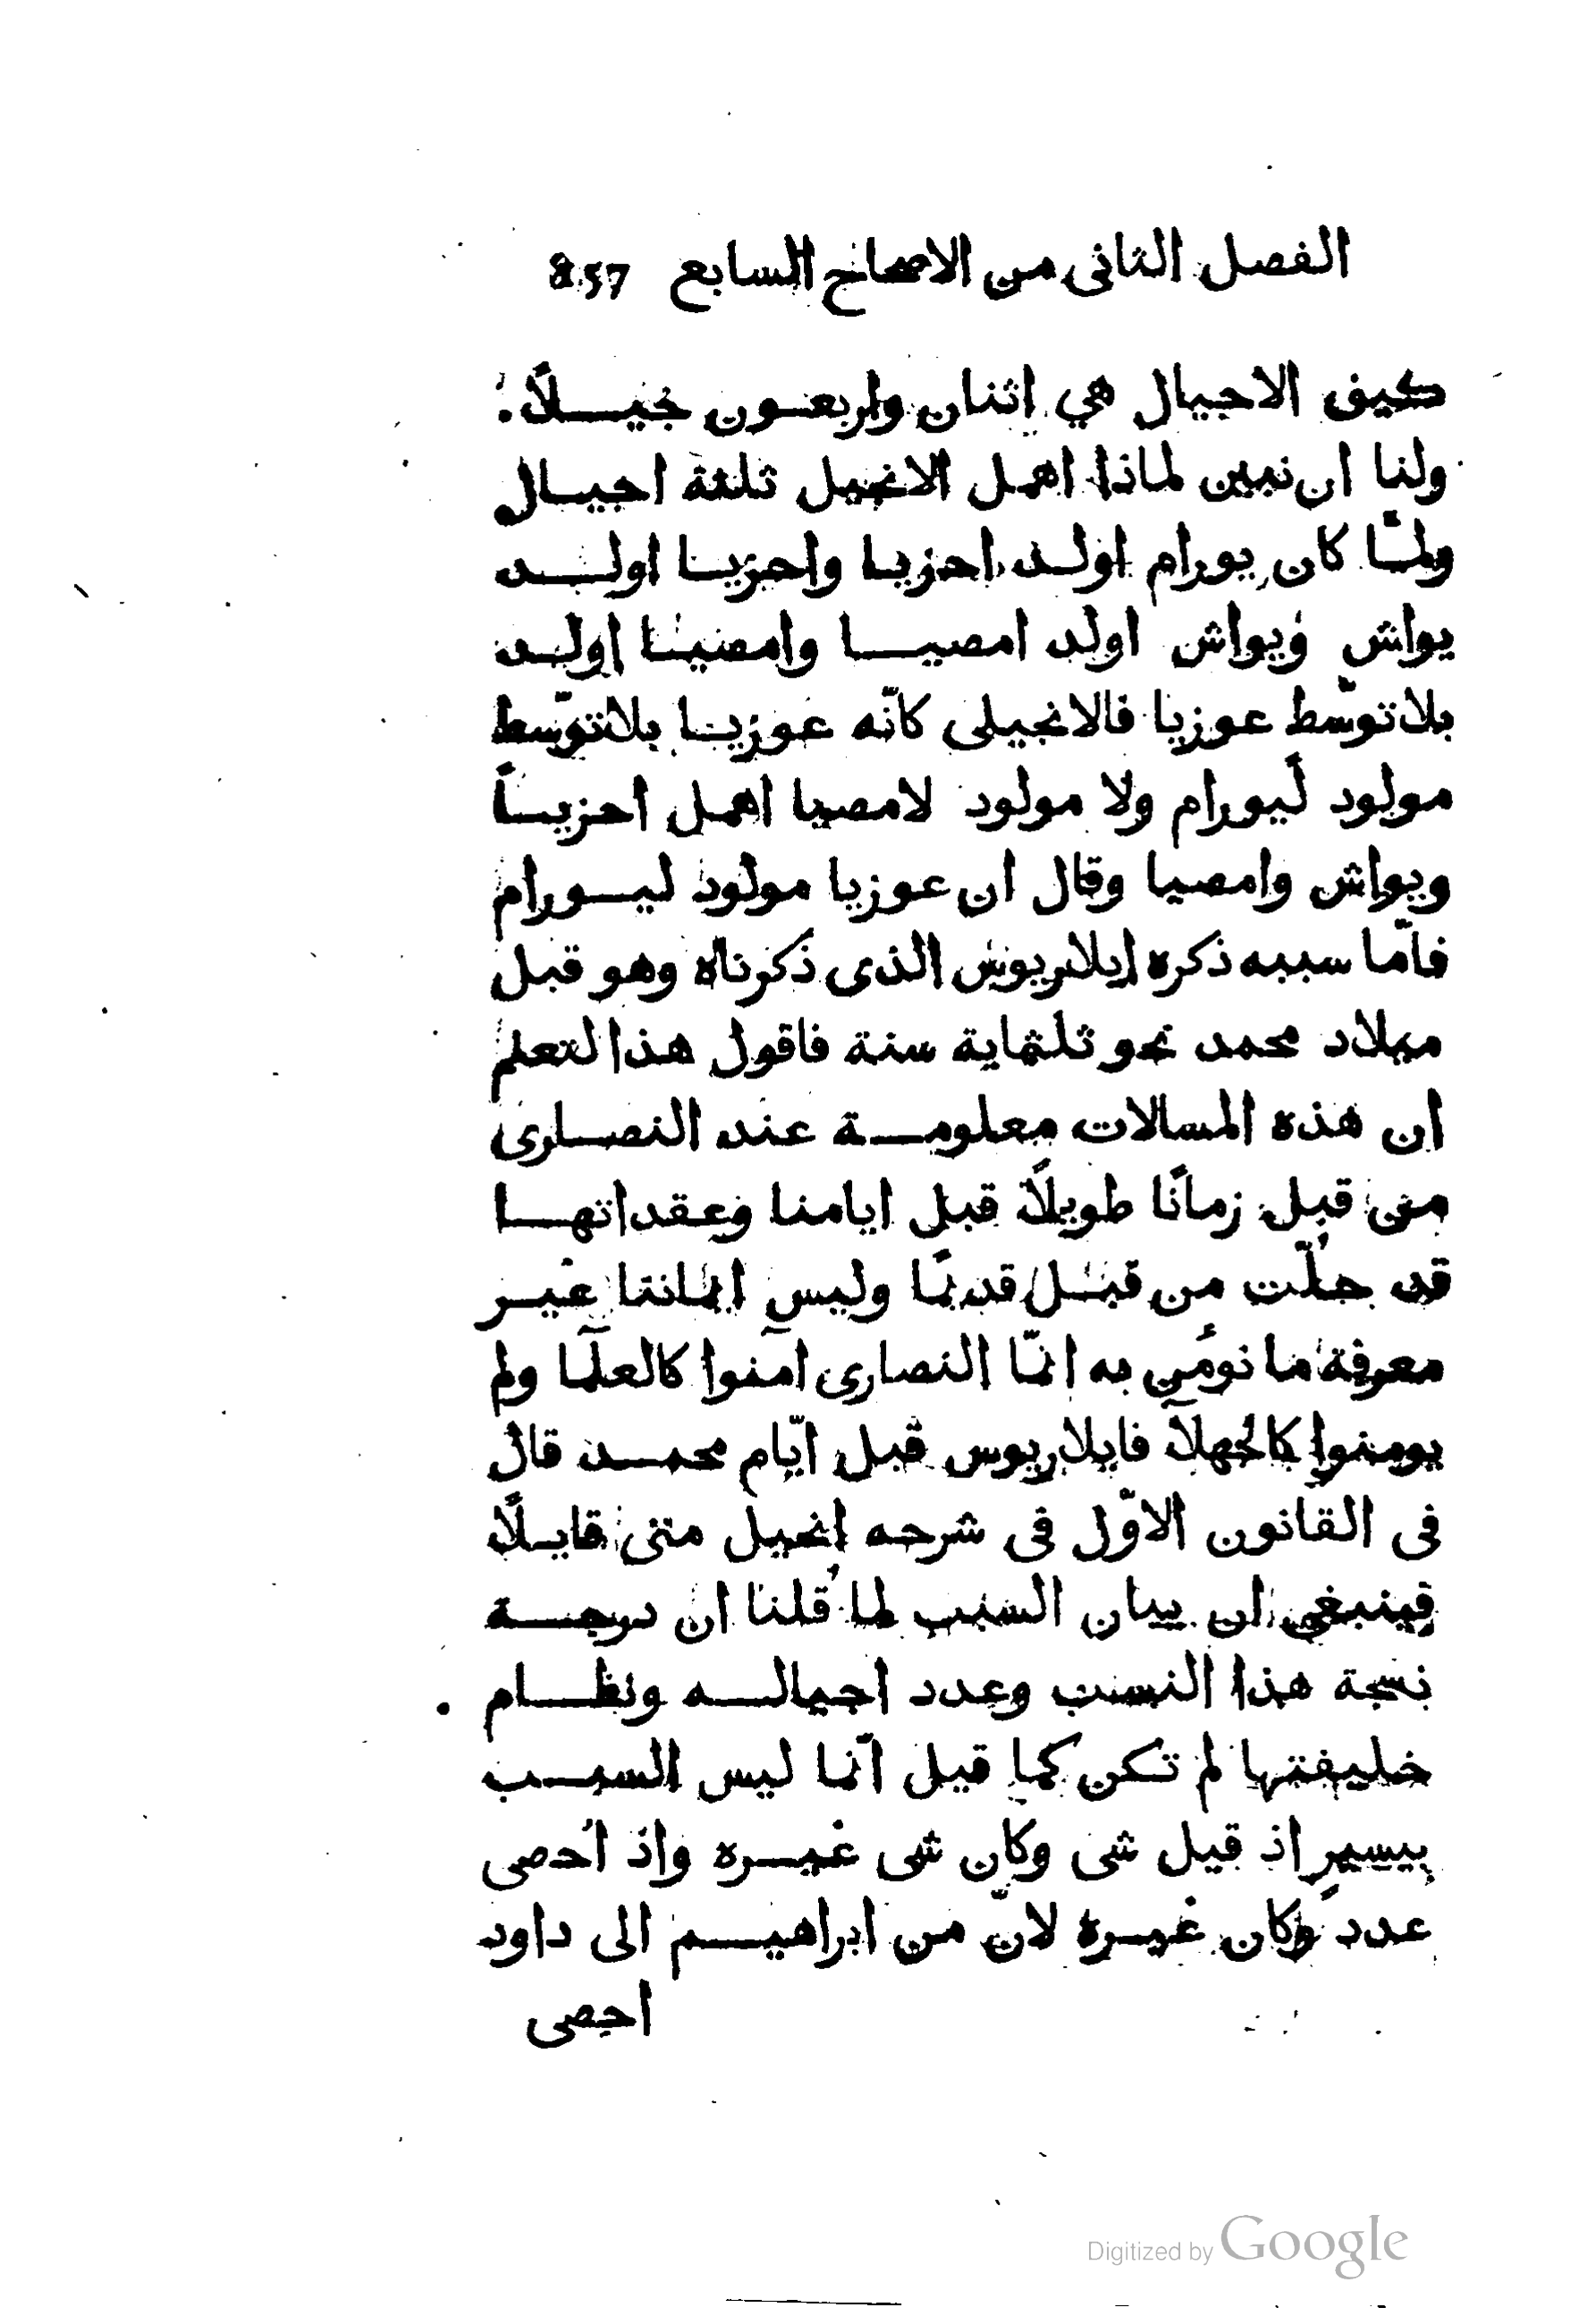 الفصل الثانى من الاصحاح السابع 857
كيف الاجيال هي اثنان واربعون جيلاً.
ولنا ان نبين لماذا اهمل الانجيل ثلثة اجيال
ولمّا كان يورام اولد احزيا واحزيا اولد
يواش ويواش اولد امصيا وامصيا اولد
بلا توسّط عوزيا فالانجيلى كانّه عوزيا بلا توسّط
مولود ليورام ولا مولود لامصيا اهمل احزياً
ويواش وامصيا وقال ان عوزيا مولود ليورام
فامّا سببه ذكره ايلاريوس الذى ذكرناه وهو قبل
ميلاد محمد نحو ثلثماية سنة فاقول هذا لتعلم
ان هذه المسالات معلومة عند النصارى
من قبل زمانًا طويلاً قبل ايامنا وعقداتها
قد حلّت من قبل قديمًا وليس ايماننا غير
معرفة ما نؤمن به انمّا النصارى آمنوا كالعلمآ ولم
يومنوا كالجهلآ فايلاريوس قبل ايّام محمد قال
فى القانون الاوّل فى شرحه انجيل متى قايلاً
فينبغي ان يبان السبب لما قلنا ان درجة
نسجة هذا النسب وعدد اجياله ونظام
خليفتها لم تكن كما قيل انّما ليس السبب
بيسيرٍ اذ قيل شى وكان شى غيره واذ اُحصى
عدد وكان غيره لانّ من ابراهيم الى داود
احصى
Digitized by Google